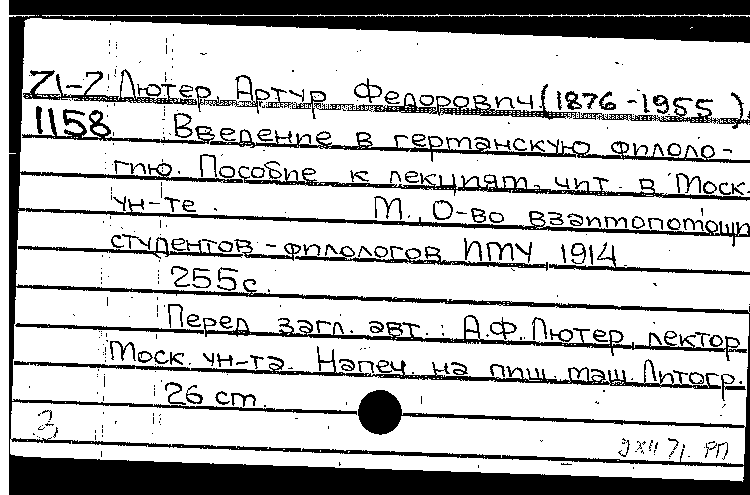 Z1-7 Лютер, Артур Федорович (1876-1955),
1158 Введение в германскую филоло-
гию. Пособие к лекциям, чит. в Моск.
ун-те. М., О-во взаимопомощи
студентов-филологов ИМУ, 1914.
255 с.
Перед загл. авт.: А.Ф. Лютер, лектор
Моск. ун-та. Напеч. на пиш. маш. Литогр.
26 см.
3
РП